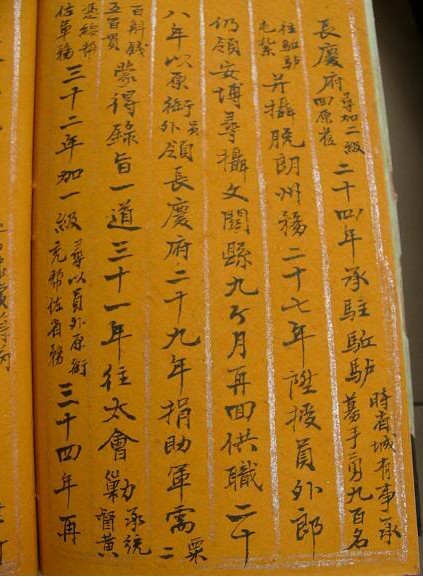 長慶府尋加二級回原莅二十四年承駐駈馿時者城有事承募手勇九百名
往駐馿屯紥并攝脱朗州務二十七年陞授員外郎
仍領安博尋攝文關縣九ケ月再回供職二十
八年以原銜員外領長慶府二十九年捐助軍需粟二
百斛錢五百貫蒙得錄旨一道三十一年往太會勦承統督黃
憑給帮佐軍務三十二年加一級尋以員外原銜充帮佐省務三十四年再